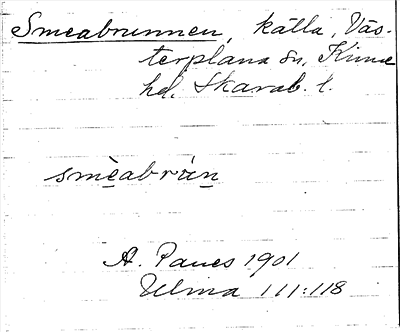 Smeabrunnen, källa, Väs-
terplana sn, Kinne
hd, Skarab. l.
smèabrún
A. Panes 1901
Ulma 111:118